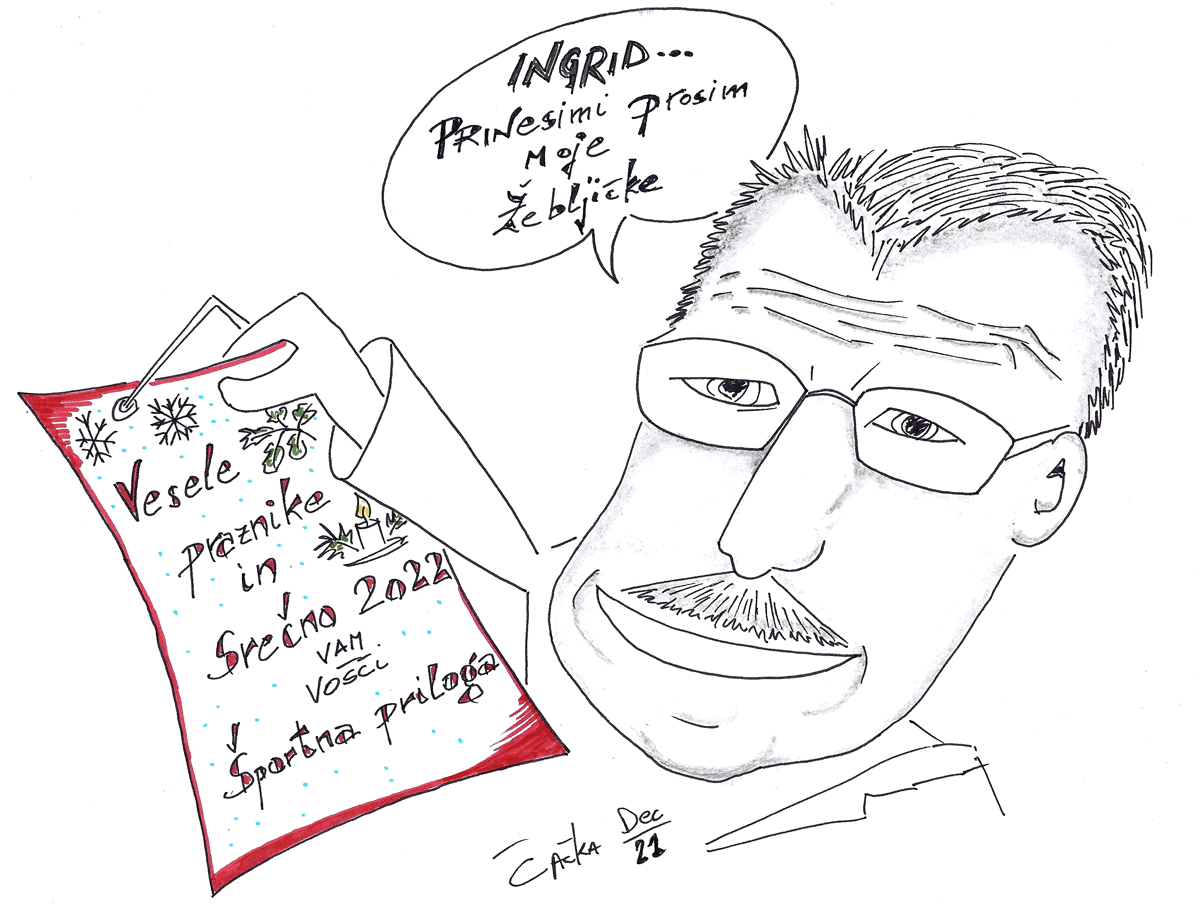 INGRID...
PRINesimi prosim
moje
žebljičke
Vesele
praznike
in
Srečno 2022
VAM
VOŠČI
Športna priloga
ČAČKA Dec
21